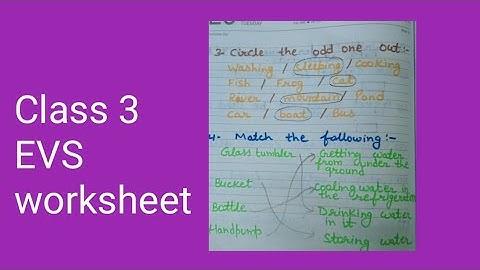 Class 3
EVS
worksheet
TUESDAY
3- Circle the odd one out:-
Washing / Sleeping / Cooking
Fish / Frog / Cat
River / mountain / Pond
Car / boat / Bus
4- Match the following:-
Glass tumbler Getting water
from under the
ground
Bucket Cooling water in
the refrigerator
Bottle Drinking water
in it
Handpump Storing water